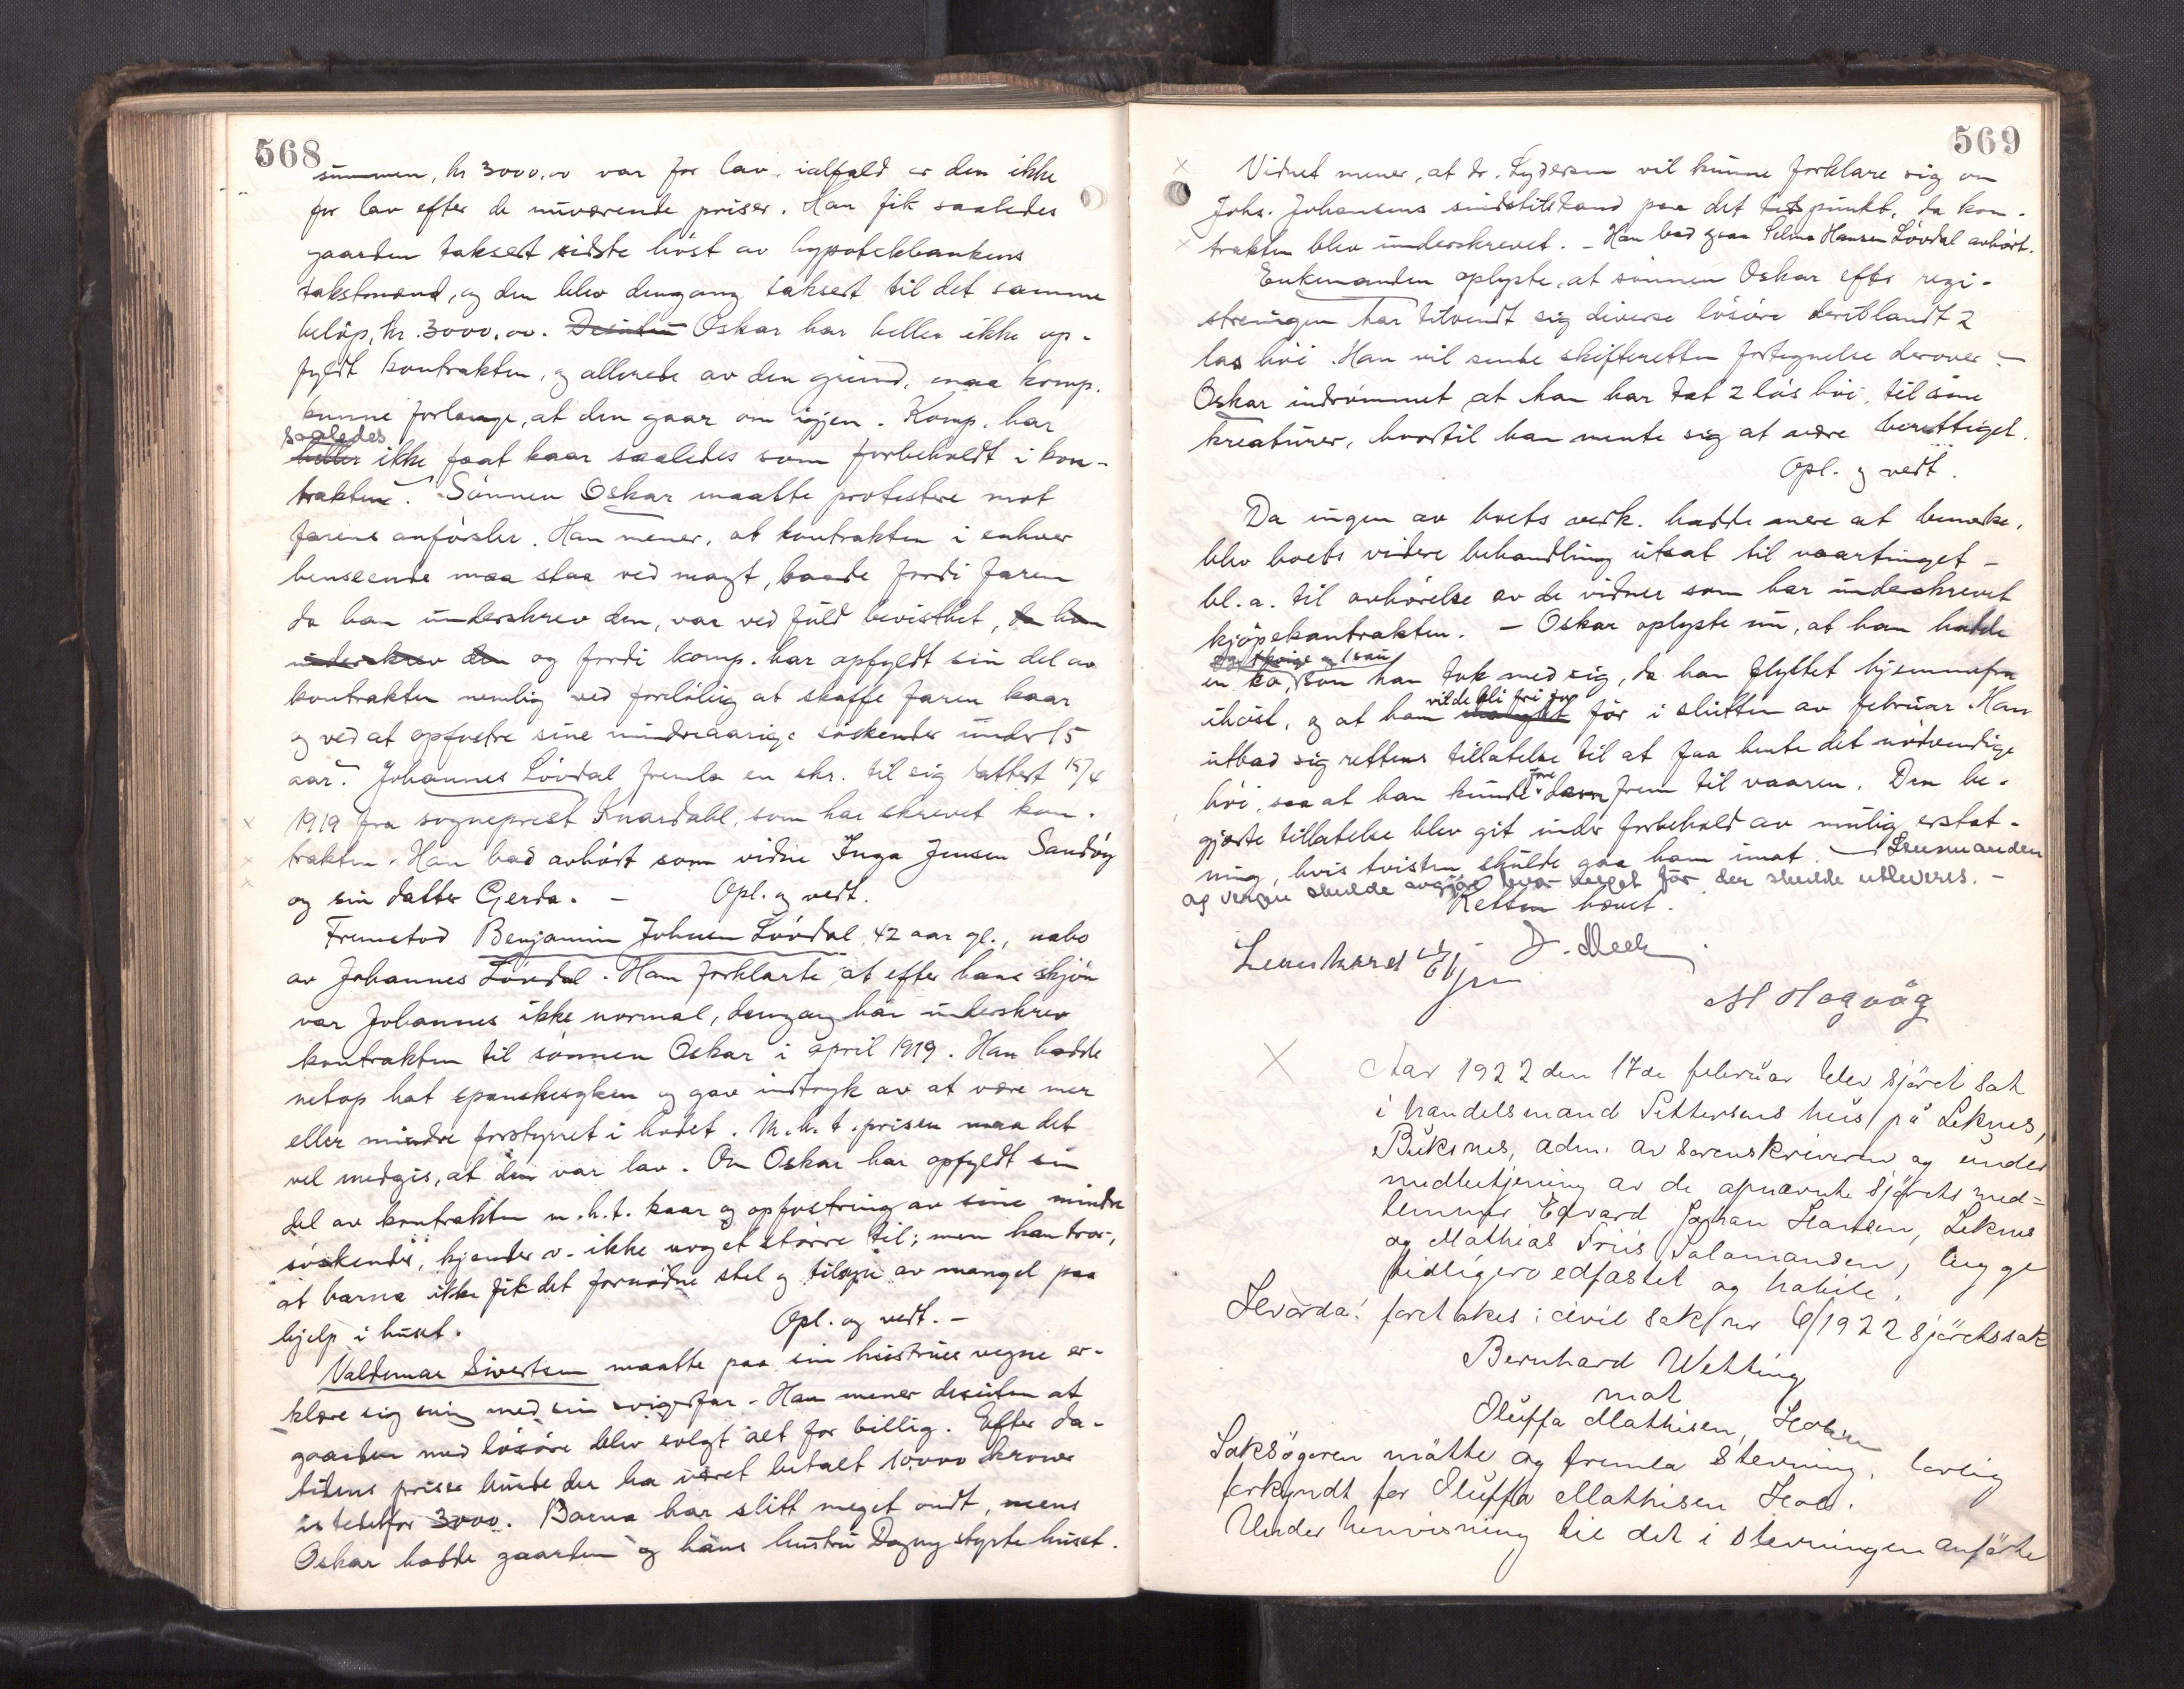 568
summen, kr 3000,00 var for lav. ialfald er den ikke
for lav efter de nuværende priser. Han fik saaledes
gaarden taksert sidste høst av hypotekbankens
takstmænd, og den blev dengang taksert til det samme
beløp, kr. 3000,00. Desuten Oskar har heller ikke op-
fyldt kontrakten, og allerede av den grund, maa komp.
kunne forlange, at den gaar om igjen. Komp. har
saaledes
heller ikke faat kaar saaledes som forbeholdt i kon-
trakten. - Sønnen Oskar maatte protestere mot
farens anførsler. Han mener, at kontrakten i enhver
henseende maa staa ved magt, baade fordi faren
da han underskrev den, var ved fuld bevisthet, da han
underskrev den og fordi komp. har opfyldt sin del av
kontrakten nemlig ved foreløbig at skaffe faren kaar
og ved at opfostre sine mindreaarige søskender under 15
aar. - Johannes Løvdal fremla en skr. til sig datert 15/4
1919 fra sogneprest Knardahl, som har skrevet kon-
trakten. Han bad avhørt som vidne Inga Jensen Sandøy
og sin datter Gerda. - Opl. og vedt.
Fremstod Benjamin Johnsen Løvdal, 42 aar gl., nabo
av Johannes Løvdal. Han forklarte at efter hans skjøn
var Johannes ikke normal, dengang han underskrev
kontrakten til sønnen Oskar i april 1919. Han hadde
netop hat spanskesyken og gav indtryk av at være mer
eller mindre forstyrret i hodet. M.h.t. prisen maa det
vel medgis, at den var lav. Om Oskar har opfyldt sin
del av kontrakten m.h.t. kaar og opfostring av sine mindre
søskender, kjender v. ikke noget større til; men han tror,
at barna ikke fik det fornødne stel og tilsyn av mangel paa
hjelp i huset. Opl. og vedt. -
Valdemar Sivertsen maatte paa sin hustrues vegne er-
klære sig enig med sin svigerfar. Han mener desuten at
gaarden med løsøre blev solgt alt for billig. Efter da-
tidens priser burde der ha været betalt 10000 kroner
istedetfor 3000. Barna har slitt meget ondt, mens
Oskar hadde gaarden og hans hustru Dagny styrte huset.
569
Vidnet mener, at dr. Lydersen vil kunne forklare sig om
Johs. Johansens sindstilstand paa det tidspunkt, da kon-
trakten blev underskrevet. - Han bad ogsaa Selma Hansen Løvdal avhørt.
Enkemanden oplyste, at sønnen Oskar efter regi-
streringen har tilvendt sig diverse løsøre deriblandt 2
las høi. Han vil sende skifteretten fortegnelse derover. -
Oskar indrømmet at han har tat 2 las høi, til sine
kreaturer, hvortil han mente sig at være berettiget.
Opl. og vedt.
Da ingen av boets vedk. hadde mere at bemerke,
blev boets videre behandling utsat til vaartinget -
bl.a. til avhørelse av de vidner som har underskrevet
kjøpekontrakten. - Oskar oplyste nu, at han hadde
og 1 sau
en ko, som han tok med sig, da han flyttet hjemmefra
vilde bli fri for
ihøst, og at han før i slutten av februar. Han
utbad sig rettens tillatelse til at faa hente det nødvendige
høi, saa at han kunde fore dem frem til vaaren. Den be-
gjærte tillatelse blev git under forbehold av mulig erstat-
ning, hvis tvisten skulde gaa ham imot. - Lensmanden
og vergen skulde avgjøre hvor meget før der skulde utleveres. -
Retten hævet.
D. Meek
M Hagvåg
Aar 1922 den 17de februar blev sjøret sat
i handelsmand Pettersens hus på Leknes,
Buksnes, adm. av sorenskriveren og under
medbetjening av de opnævnte sjørets med=
lemmer Edvard Johan Hansen, Leknes
og Mathias Friis Salamonsen, begge
tidligere edfæstet og habile.
Hvorda: foretakes: civil sak nr 6/1922 sjøretssak
Bernhard Wetting
mot
Oluffa Mathisen,
Saksøgeren møtte og fremla stevning, lovlig
forkyndt for Oluffa Mathisen
Under henvisning til det i stevningen anførte